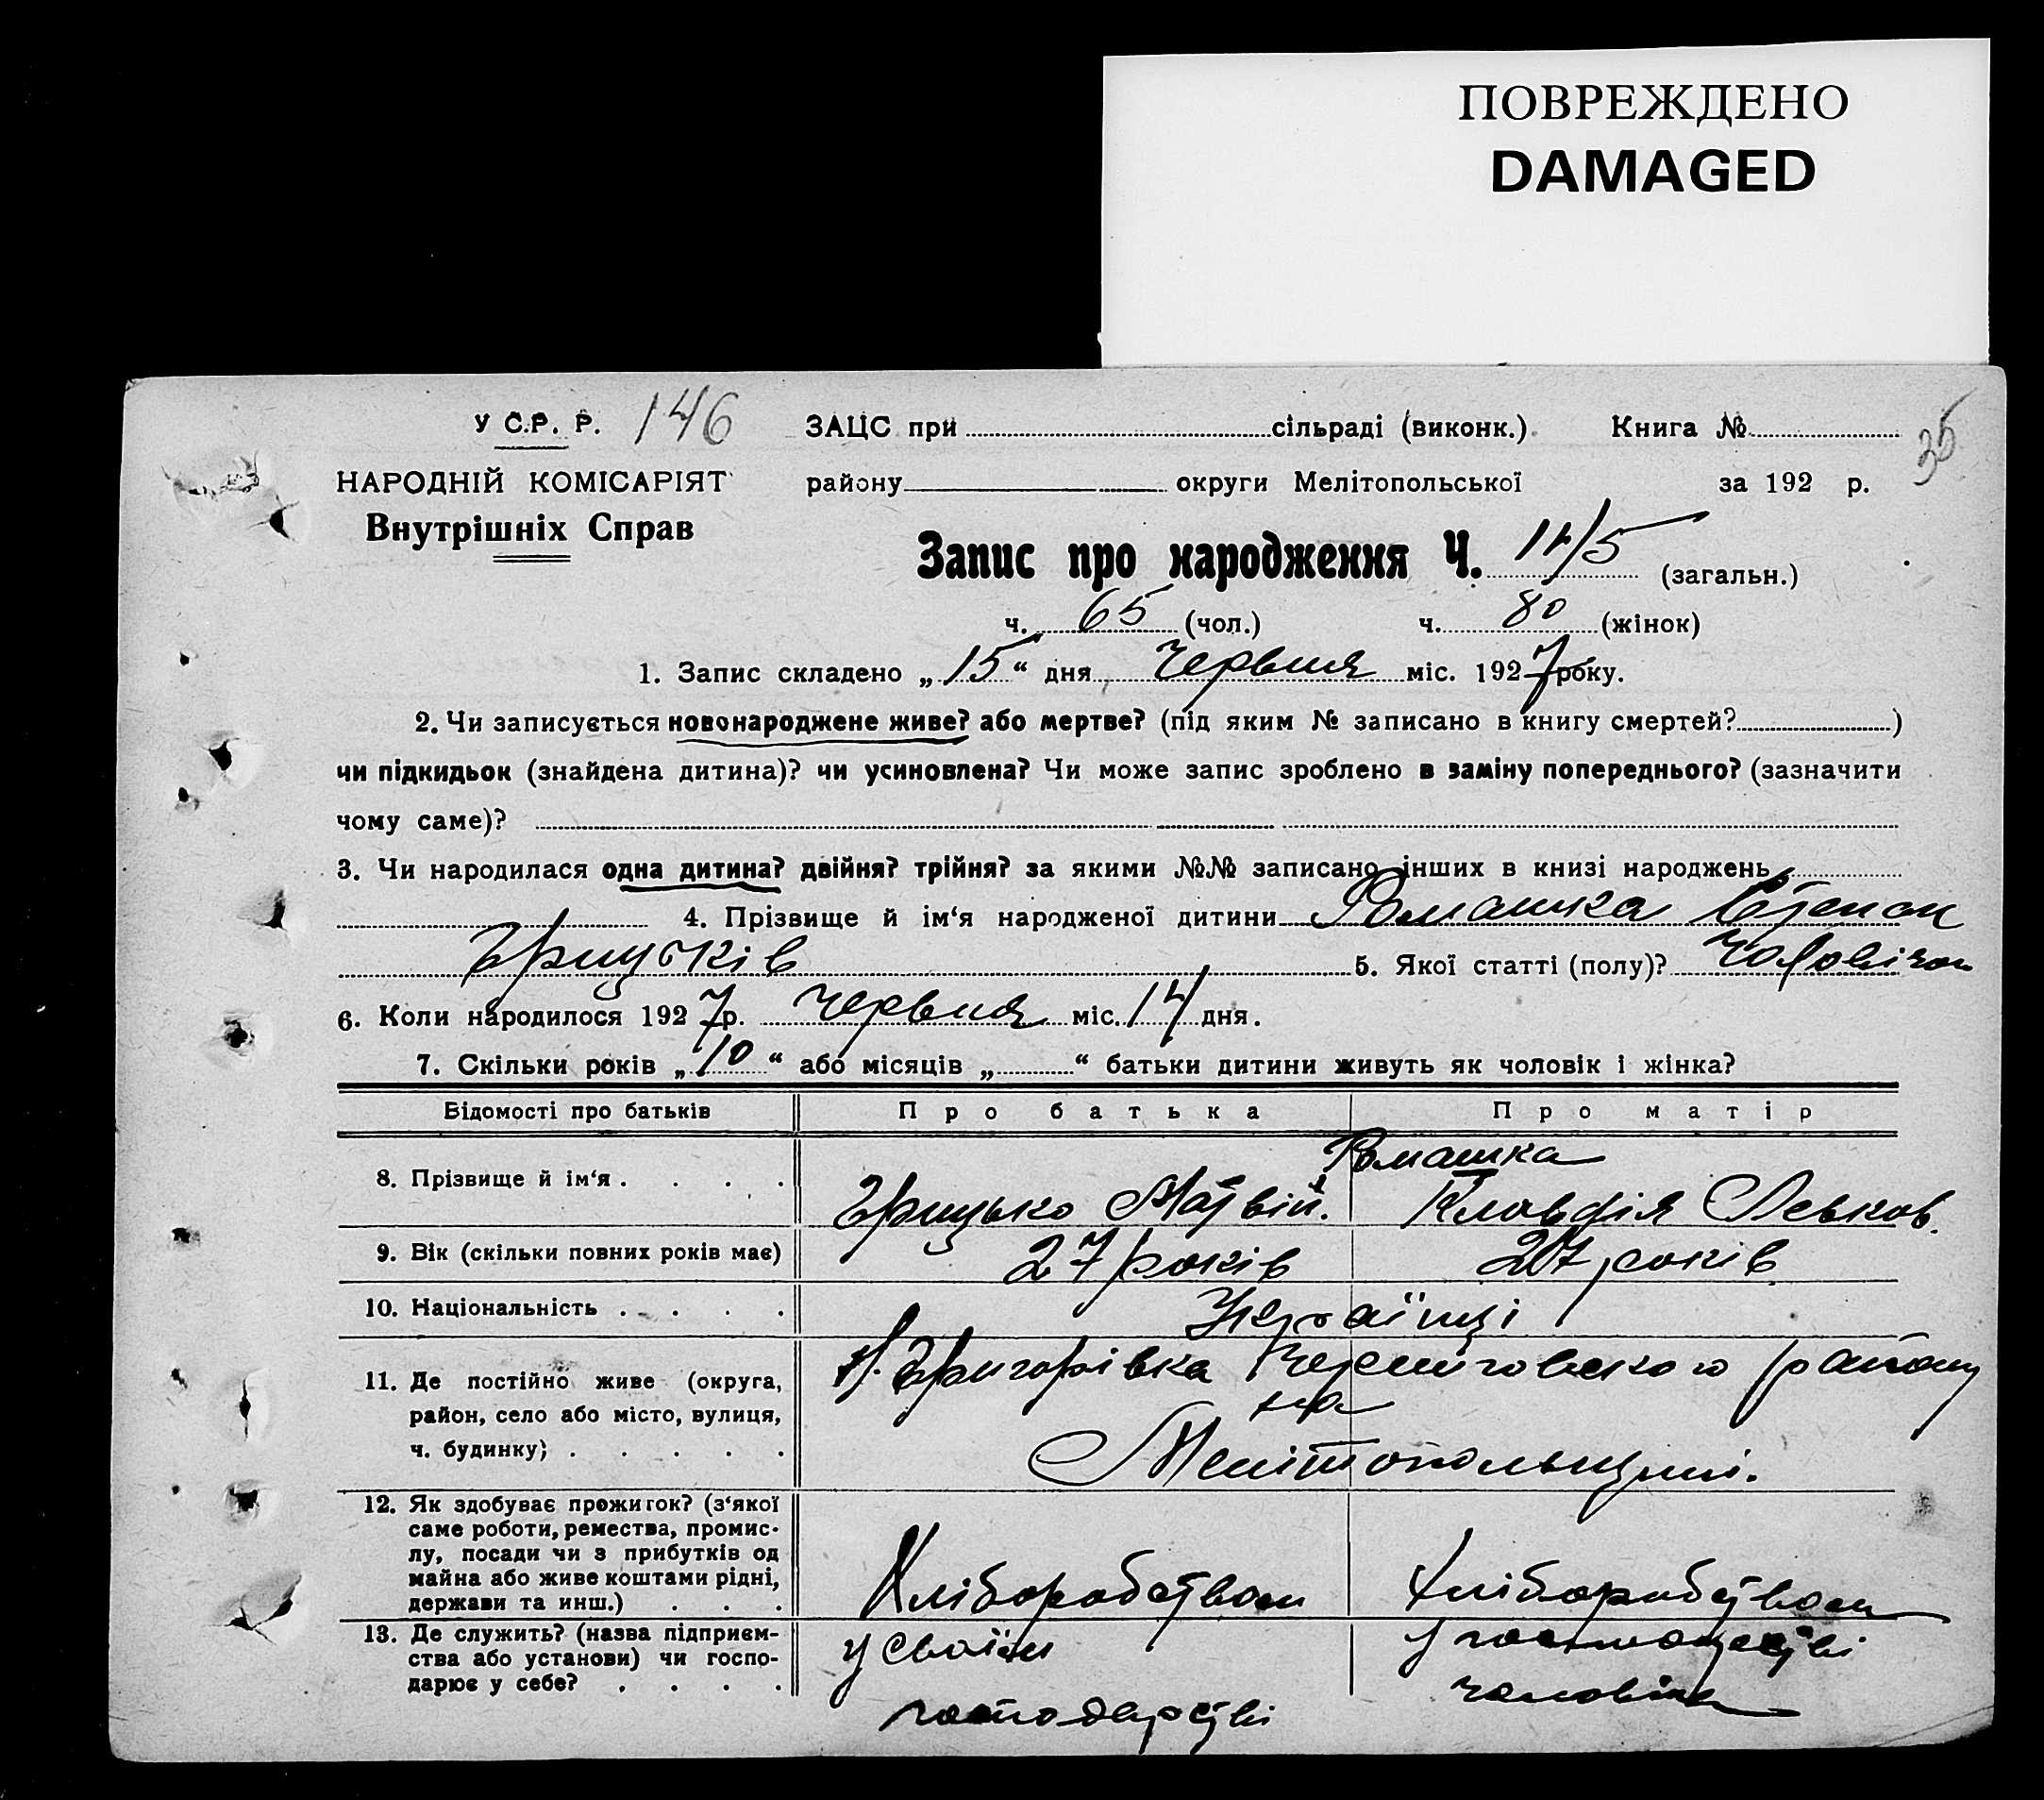 ПОВРЕЖДЕНО
DAMAGED
У С.Р. Р. 146 ЗАЦС при сільраді (виконк.) Книга № 35
НАРОДНІЙ КОМІСАРІЯТ району округи Мелітопольської за 192 р.
Внутрішніх Справ
Запис про народження Ч. (загальн.)
ч. 65 (чол.) ч. 80 (жінок)
1. Запис складено „15“ дня червня міс. 1927 року.
2. Чи записується новонароджене живе? або мертве? (під яким № записано в книгу смертей? )
чи підкидьок (знайдена дитина)? чи усиновлена? Чи може запис зроблено в заміну попереднього? (зазначити
чому саме)?
3. Чи народилася одна дитина? двійня? трійня? за якими №№ записано інших в книзі народжень
4. Прізвище й ім‘я народженої дитини Ромашка Степан
Грицьків 5. Якої статті (полу)? чоловічої
6. Коли народилося 1927 р. червня міс. 14 дня.
7. Скільки років „10“ або місяців „ “ батьки дитини живуть як чоловік і жінка?
Відомості про батьків Про батька Про матір
Ромашка
8. Прізвище й ім‘я . . . . Грицько Матвій. Клавдія Левков.
9. Вік (скільки повних років має) 27 років 27 років
10. Національність . . . . Українці
11. Де постійно живе (округа, Григорівка Черніговського району
район, село або місто, вулиця, на
ч. будинку) . . . . . Мелітопольщині.
12. Як здобуває прожиток? (з‘якої
саме роботи, ремества, промис-
лу, посади чи з прибутків од
майна або живе коштами рідні, Хліборобством Хліборобством
держави та инш.) . . .
13. Де служить? (назва підприєм- у своїм у господарстві
ства або установи) чи госпо-
дарює у себе? . . . . господарстві чоловіка